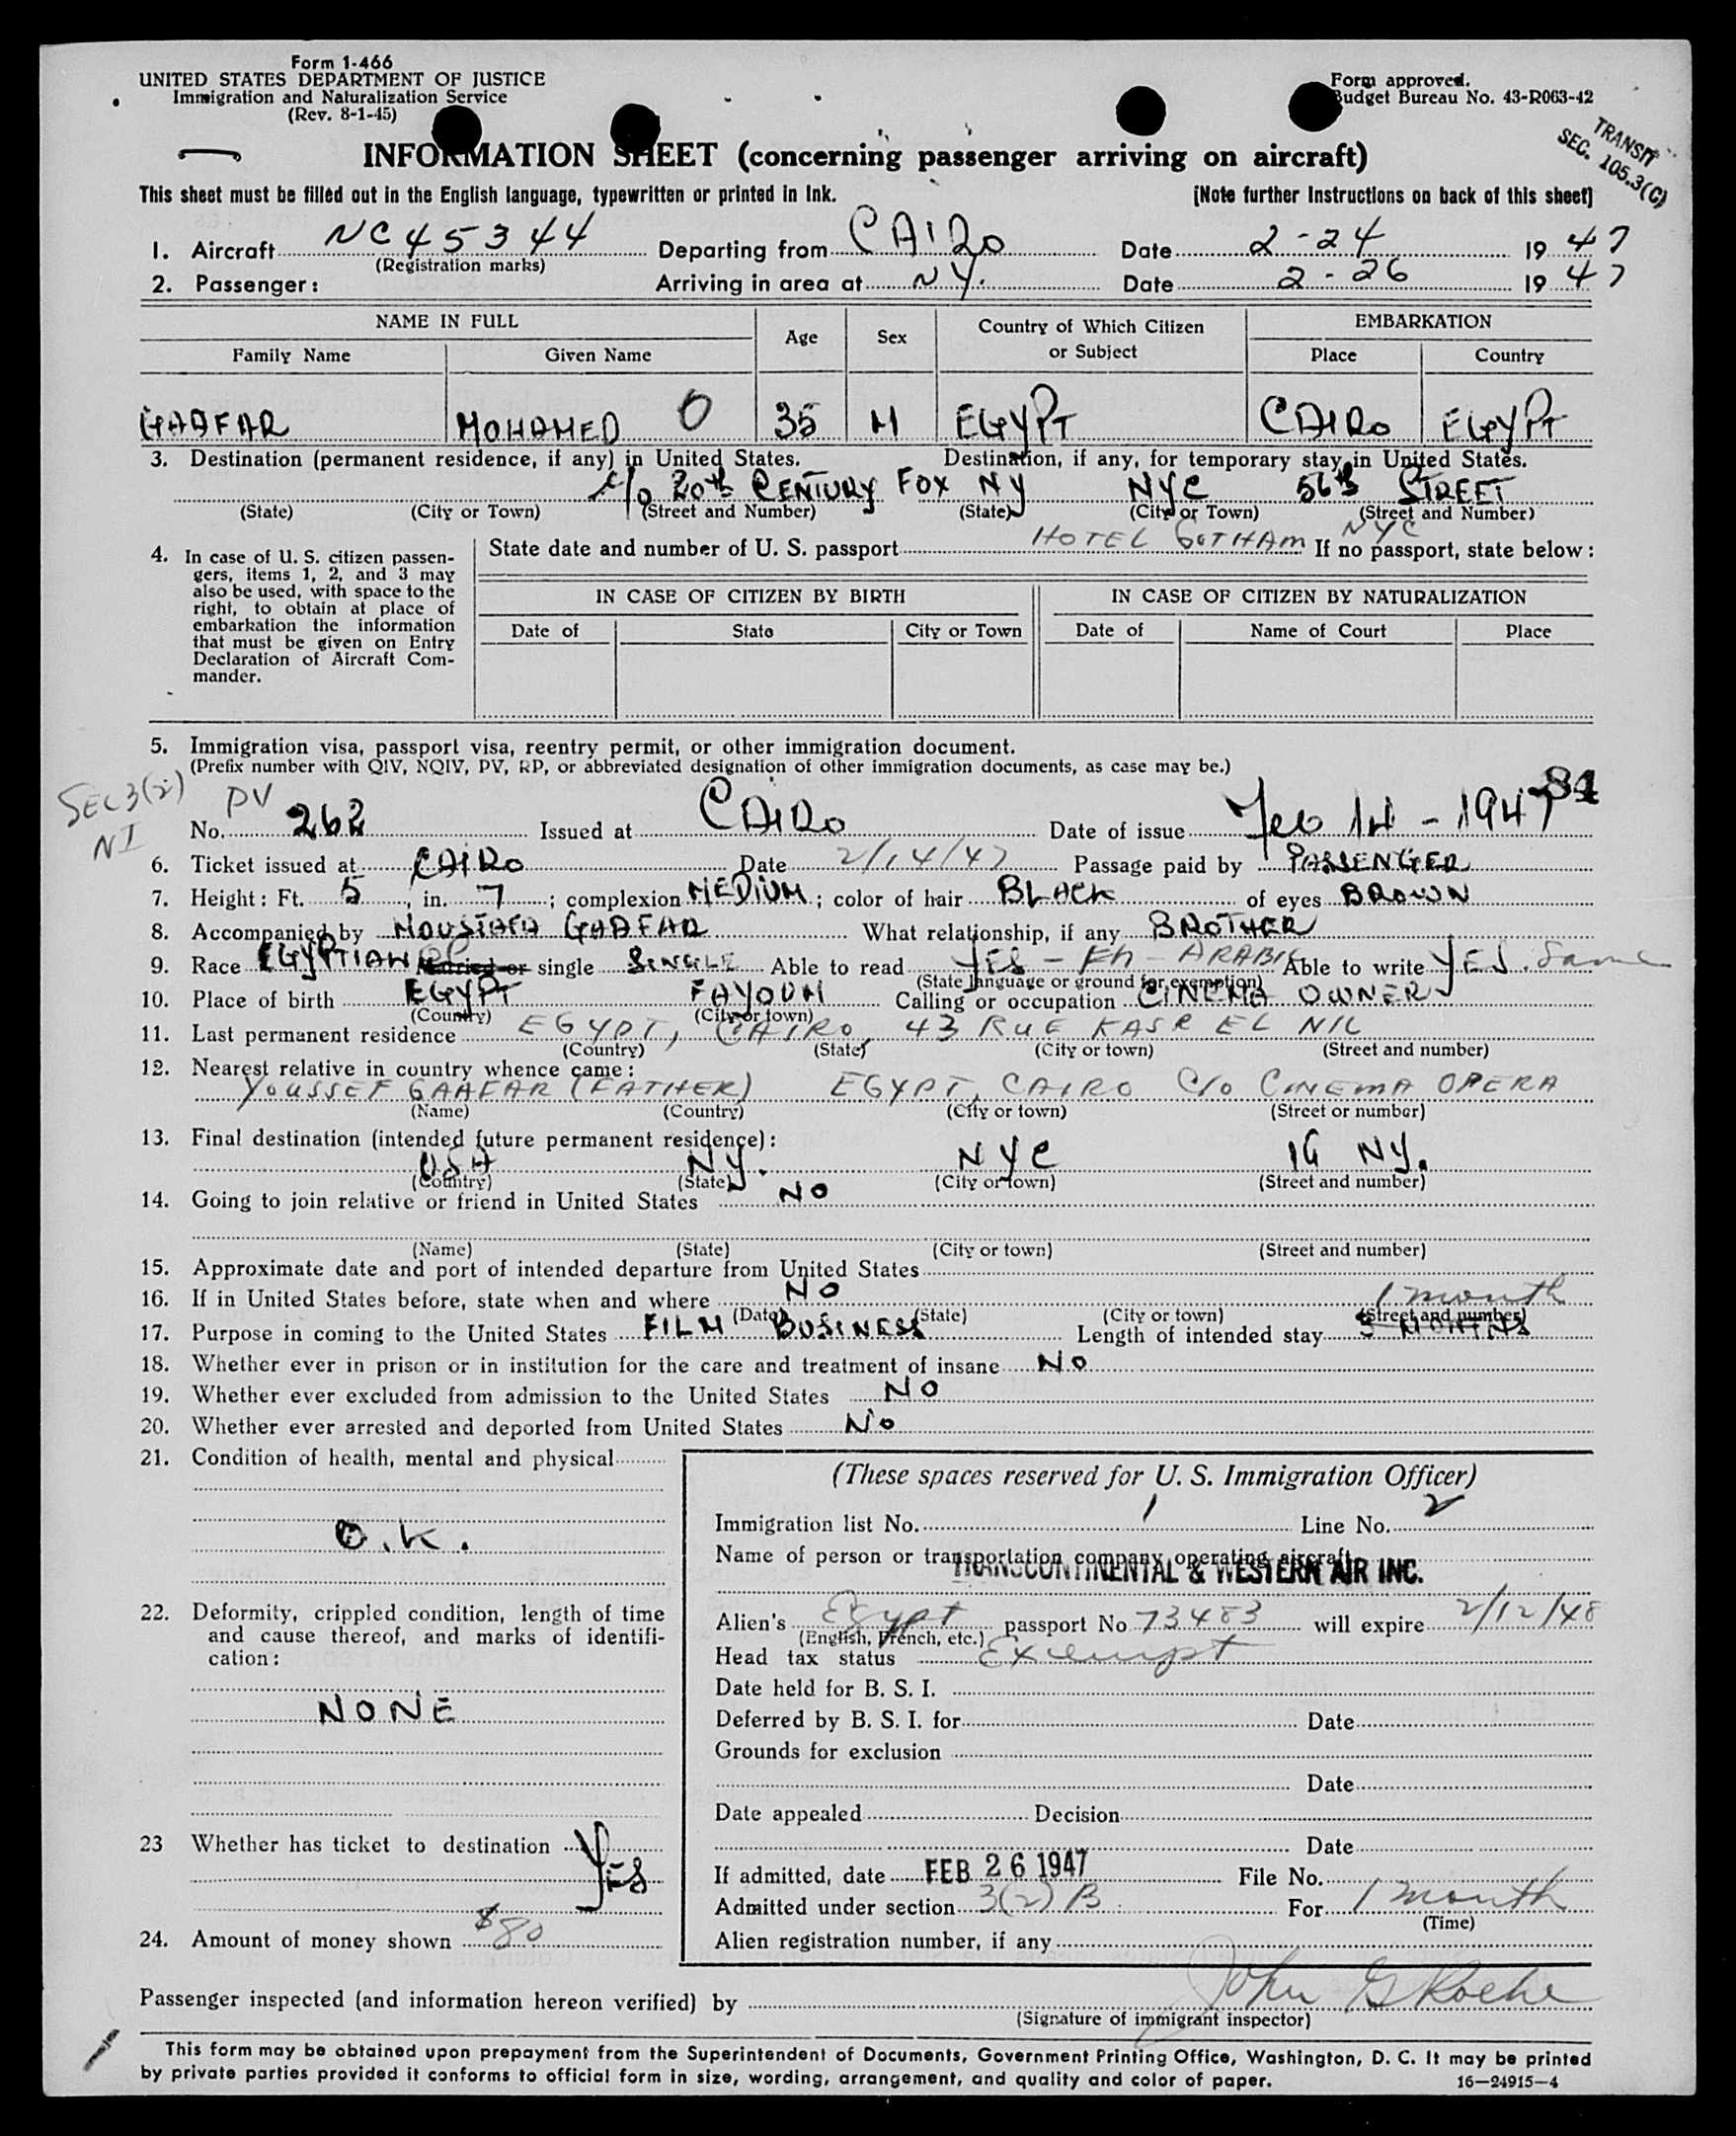 Form 1-466
UNITED STATES DEPARTMENT OF JUSTICE
Immigration and Naturalization Service
(Rev. 8-1-45)
Form approved.
Budget Bureau No. 43-R063-42
TRANSIT
SEC. 105.3(C)
INFORMATION SHEET (concerning passenger arriving on aircraft)
This sheet must be filled out in the English language, typewritten or printed in ink. [Note further Instructions on back of this sheet]
1. Aircraft NC45344 Departing from CAIRO Date 2-24 19 47
(Registration marks)
2. Passenger: Arriving in area at NY. Date 2-26 19 47
NAME IN FULL Age Sex Country of Which Citizen or Subject EMBARKATION
Family Name Given Name Place Country
GAAFAR MOHAMED O 35 M EGYPT CAIRO EGYPT
3. Destination (permanent residence, if any) in United States. Destination, if any, for temporary stay in United States.
c/o 20th CENTURY FOX NY NYC 56th STREET
(State) (City or Town) (Street and Number) (State) (City or Town) (Street and Number)
HOTEL GOTHAM NYC
4. In case of U. S. citizen passengers, items 1, 2, and 3 may also be used, with space to the right, to obtain at place of embarkation the information that must be given on Entry Declaration of Aircraft Commander.
State date and number of U. S. passport If no passport, state below:
IN CASE OF CITIZEN BY BIRTH IN CASE OF CITIZEN BY NATURALIZATION
Date of State City or Town Date of Name of Court Place
5. Immigration visa, passport visa, reentry permit, or other immigration document.
(Prefix number with QIV, NQIV, PV, RP, or abbreviated designation of other immigration documents, as case may be.)
SEC 3(2)
NI
84
PV
No. 262 Issued at CAIRO Date of issue Feb 14 - 1947
6. Ticket issued at CAIRO Date 2/14/47 Passage paid by PASSENGER
7. Height: Ft. 5, in. 7; complexion MEDIUM; color of hair BLACK of eyes BROWN
8. Accompanied by MOUSTAFA GAAFAR What relationship, if any BROTHER
9. Race EGYPTIAN Married or single SINGLE Able to read YES - Eh - ARABIC Able to write YES. Same
(State language or ground for exemption)
10. Place of birth EGYPT FAYOUM Calling or occupation CINEMA OWNER
(Country) (City or town)
11. Last permanent residence EGYPT, CAIRO, 43 RUE KASR EL NIL
(Country) (State) (City or town) (Street and number)
12. Nearest relative in country whence came:
YOUSSEF GAAFAR (FATHER) EGYPT, CAIRO C/O CINEMA OPERA
(Name) (Country) (City or town) (Street or number)
13. Final destination (intended future permanent residence):
USA NY. NYC 19 NY.
(Country) (State) (City or town) (Street and number)
14. Going to join relative or friend in United States NO
(Name) (State) (City or town) (Street and number)
15. Approximate date and port of intended departure from United States
16. If in United States before, state when and where NO
1 month
(Date) (State) (City or town) (Street and number)
17. Purpose in coming to the United States FILM BUSINESS Length of intended stay 3 MONTHS
18. Whether ever in prison or in institution for the care and treatment of insane NO
19. Whether ever excluded from admission to the United States NO
20. Whether ever arrested and deported from United States No
21. Condition of health, mental and physical
O.K.
22. Deformity, crippled condition, length of time and cause thereof, and marks of identification:
NONE
23 Whether has ticket to destination YES
24. Amount of money shown $80
(These spaces reserved for U. S. Immigration Officer)
Immigration list No. 1 Line No. 2
Name of person or transportation company operating aircraft
TRANSCONTINENTAL & WESTERN AIR INC.
Alien's Egypt passport No 73483 will expire 2/12/48
(English, French, etc.)
Head tax status Exempt
Date held for B. S. I.
Deferred by B. S. I. for Date
Grounds for exclusion
Date
Date appealed Decision
Date
If admitted, date FEB 26 1947 File No.
Admitted under section 3(2) B For 1 month
(Time)
Alien registration number, if any
Passenger inspected (and information hereon verified) by John G Roche
(Signature of immigrant inspector)
This form may be obtained upon prepayment from the Superintendent of Documents, Government Printing Office, Washington, D. C. It may be printed
by private parties provided it conforms to official form in size, wording, arrangement, and quality and color of paper. 16—24915-4